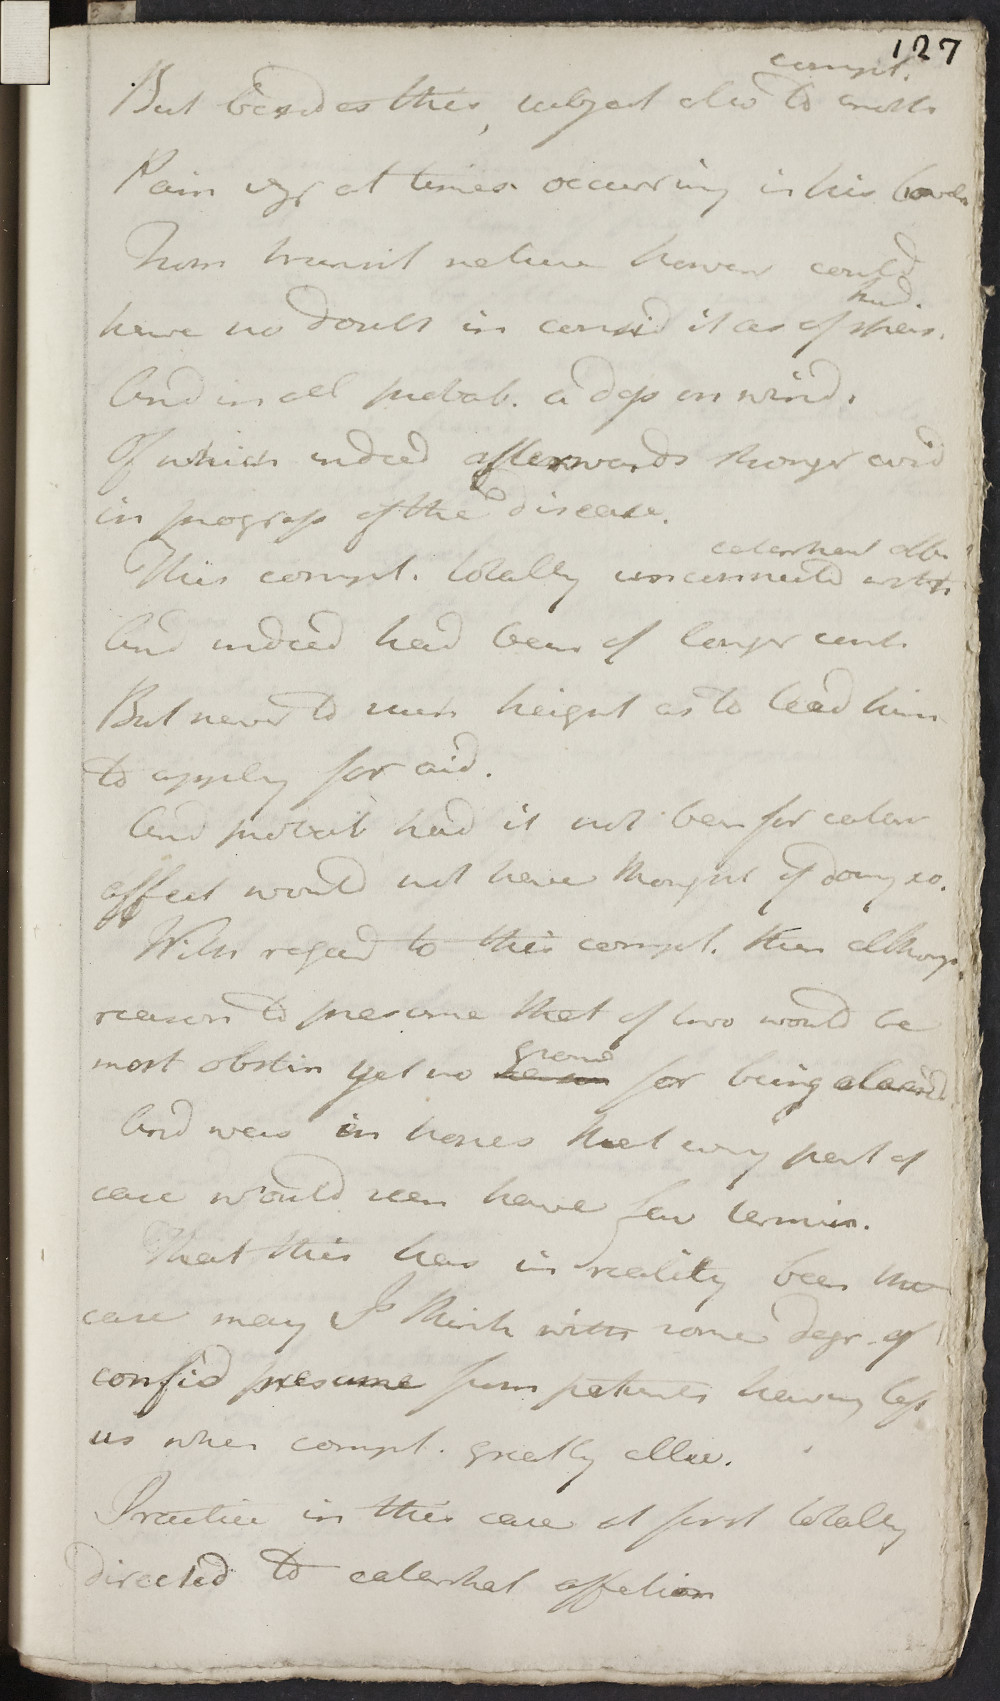 127
compt.
But besides this, subject also to anoth
Pain vyr at times occurring in his bowels
From transit nature however could
have no doubt in consid it as of spas.
kind.
And in all probab. a dep on wind.
Of which indeed afterwards stronger evid
in progress of the disease.
catarrhal affn
This compt. totally unconnected with
And indeed had been of longer cont.
But never to such height as to lead him
to apply for aid.
And probab had it not been for catarr
affect would not have thought of doing so.
With regard to this compt. then although
reason to presume that of two would be
most obstin yet no ground for being alarmd
And was in hopes that every part of
case would seen have fav termin.
That this has in reality been the
case may I think with some degr. of
confid presume from patients having left
us when compt. greatly allev.
Practice in this case at first totally
directed to catarrhal affection